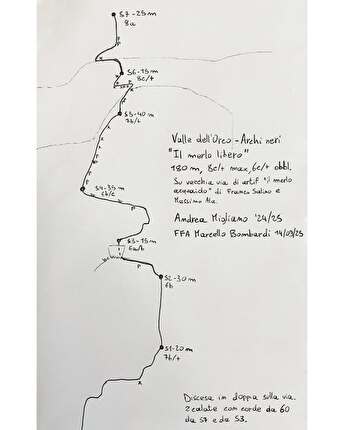 S7-25m
8a
S6-15m
8c/+
S5-40m
7b/+
S4-35m
6b/c
S3-15m
6a/b
S2-30m
6b
S1-20m
7b/+
Valle dell'Orco - Archi neri
"Il merlo libero"
180m, 8c/+ max, 6c/+ obbl.
Su vecchia via di artif "il merlo
acquaiolo" di Franco Salino e
Massimo Ala.
Andrea Migliano '24/25
FFA Marcello Bombardi 14/09/25
Discesa in doppia sulla via.
2 calate con corde da 60
da S7 e da S3.